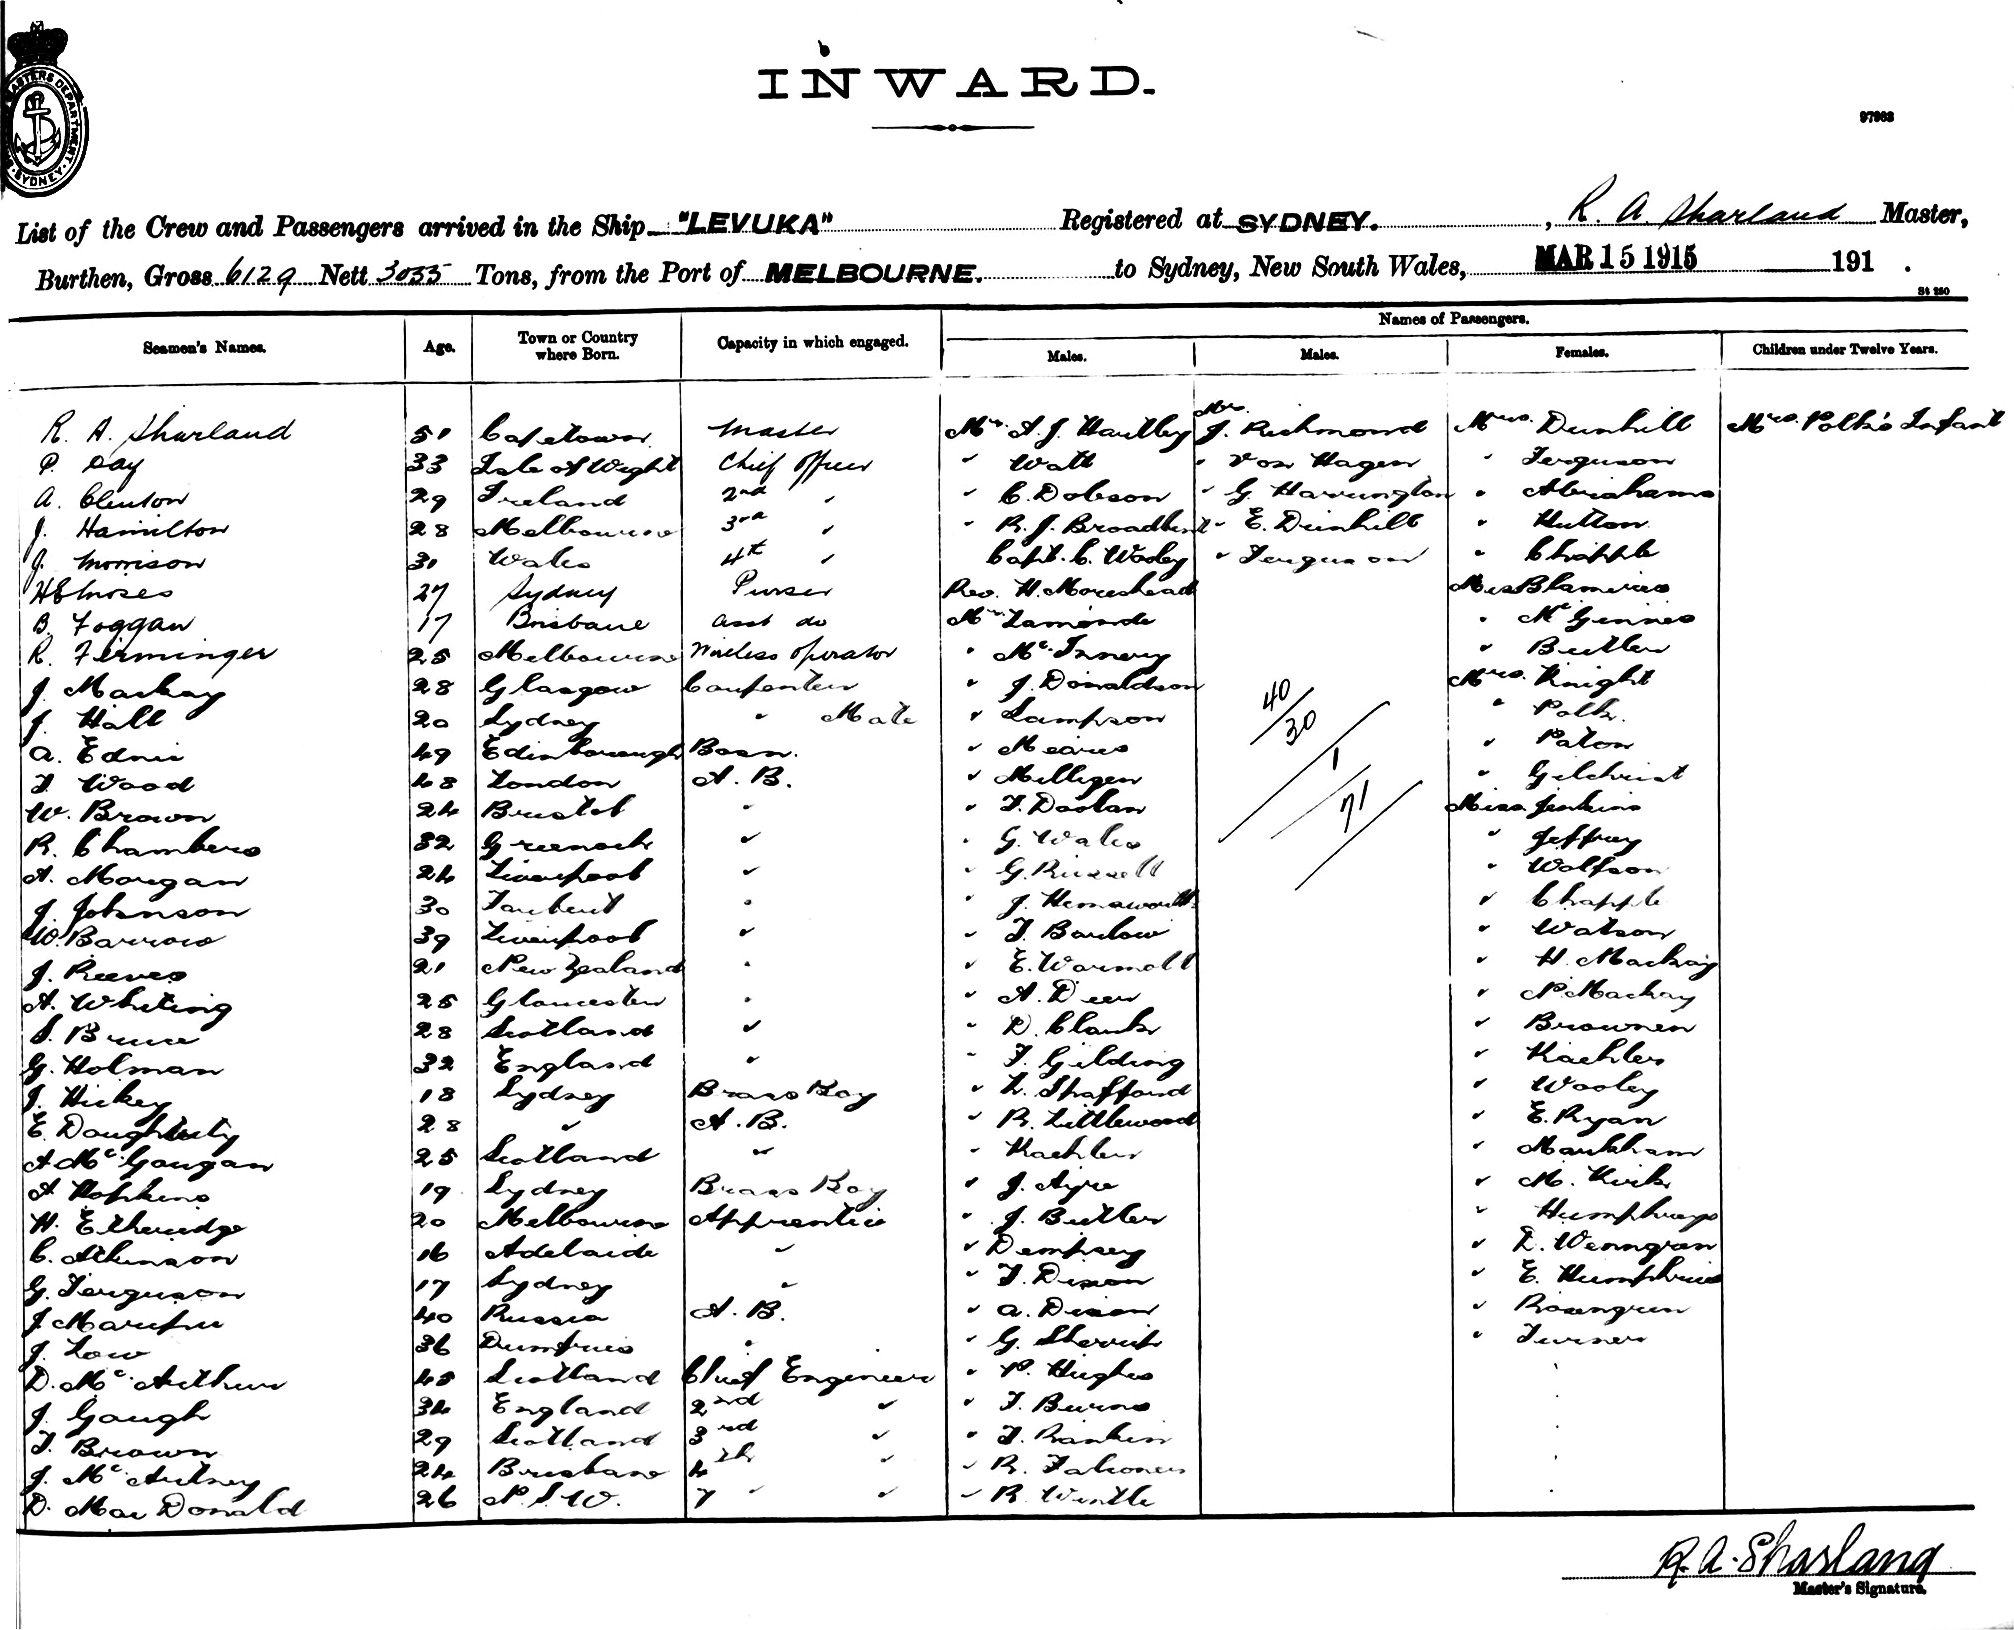 INWARD.
97963
MASTERS DEPARTMENT. SYDNEY.
List of the Crew and Passengers arrived in the Ship "LEVUKA" Registered at SYDNEY. , R. A Sharland Master,
Burthen, Gross 6129 Nett 3035 Tons, from the Port of MELBOURNE. to Sydney, New South Wales, MAR 15 1915 191 .
St 250
Names of Passengers.
Seamen's Names. Age. Town or Country where Born. Capacity in which engaged. Males. Males. Females. Children under Twelve Years.
R. A. Sharland 51 Capetown Master Mr. A. J. Hartley Mr. J. Richmond Mrs. Dunhill Mrs. Polk's Infant
P. Day 33 Isle of Wight Chief Officer " Watt " Von Hagen " Ferguson
A. Clenton 29 Ireland 2nd " " C. Dobson " G. Harrington " Abrahams
J. Hamilton 28 Melbourne 3rd " " R. J. Broadbent " E. Dunhill " Hutton
J. Morrison 31 Wales 4th " Capt. C. Wooley " Ferguson " Chapple
H E Moses 27 Sydney Purser Rev. H. Moreshead Miss Blameries
B Foggan 17 Brisbane Asst do Mr. Lamonde " McGinnes
R. Ferminger 25 Melbourne Wireless Operator " McInnery " Butler
J. Mackay 28 Glasgow Carpenter " J. Donaldson Mrs. Knight
J. Hall 20 Sydney " Mate " Lampson 40 " Polk.
A. Ednie 49 Edinborough Bosn. " Meares 30 " Paton
F Wood 48 London A. B. " Milligen 1 " Gilchrist
W. Brown 24 Bristol " " F. Doolan 71 Miss Jenkins
R. Chambers 32 Greenock " " G. Wales " Jeffrey
A. Morgan 24 Liverpool " " G. Russell " Wolfson
J. Johnson 30 " " J. Hemsworth " Chapple
W. Barrow 39 Liverpool " " F. Barlow " Watson
J. Reeves 21 New Zealand " " E. Warmoll " H. Mackay
A. Whiting 25 Gloucester " " A. Deer " N. Mackay
S. Bruce 28 Scotland " " D. Clark " Brownen
G. Holman 32 England " " F. Gilding " Kaehler
J. Hickey 18 Sydney Brass Boy " L. Spafford " Wooley
E. Daugherty 28 " A. B. " R. Littlewood " E. Ryan
A McGougan 25 Scotland " " Kaehler " Markham
A Hopkins 19 Sydney Brass Boy " J. Ayre " M. Kirk
H. Etheridge 20 Melbourne Apprentice " J. Butler " Humphreys
C. Atkinson 16 Adelaide " " Dempsey " L. Wenngren
G. Ferguson 17 Sydney " " F. Dixon " E. Humphries
J 40 Russia A. B. " A. Dixon " Rosengren
J. Low 36 Dumfries " " G. Sherrif " Turner
D. McArthur 45 Scotland Chief Engineer " P. Hughes
J. Gough 34 England 2nd " " F. Burns
F. Brown 29 Scotland 3rd " " F. Rankin
J. McAutney 24 Brisbane 4th " " R. Falconer
D. MacDonald 26 N. S. W. 7 " " " R. Wintle
R. A. Sharland
Master's Signature.